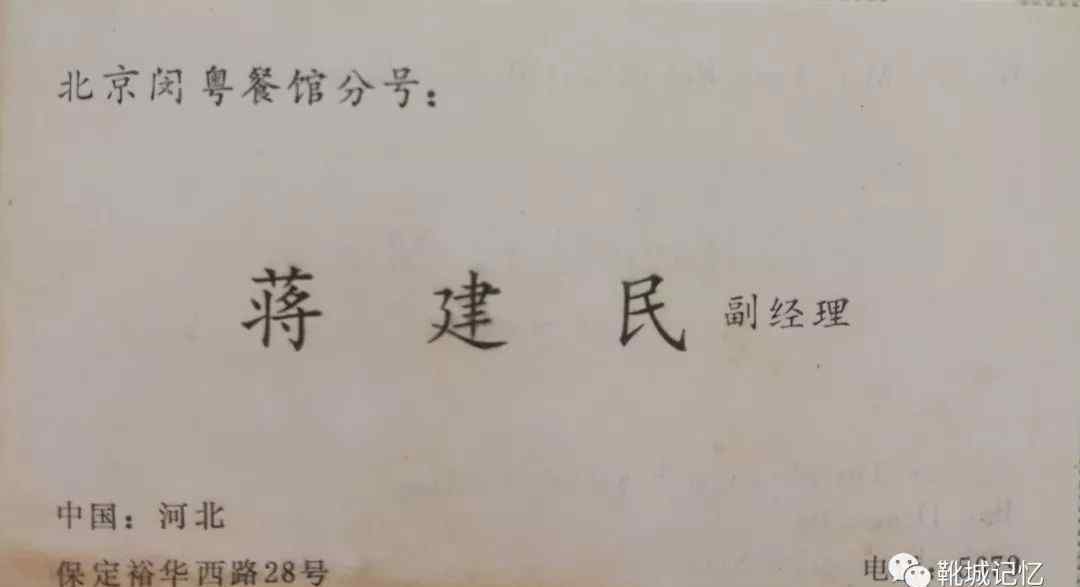 北京闵粤餐馆分号:
蒋建民 副经理
中国:河北
保定裕华西路28号
电
靴城记忆